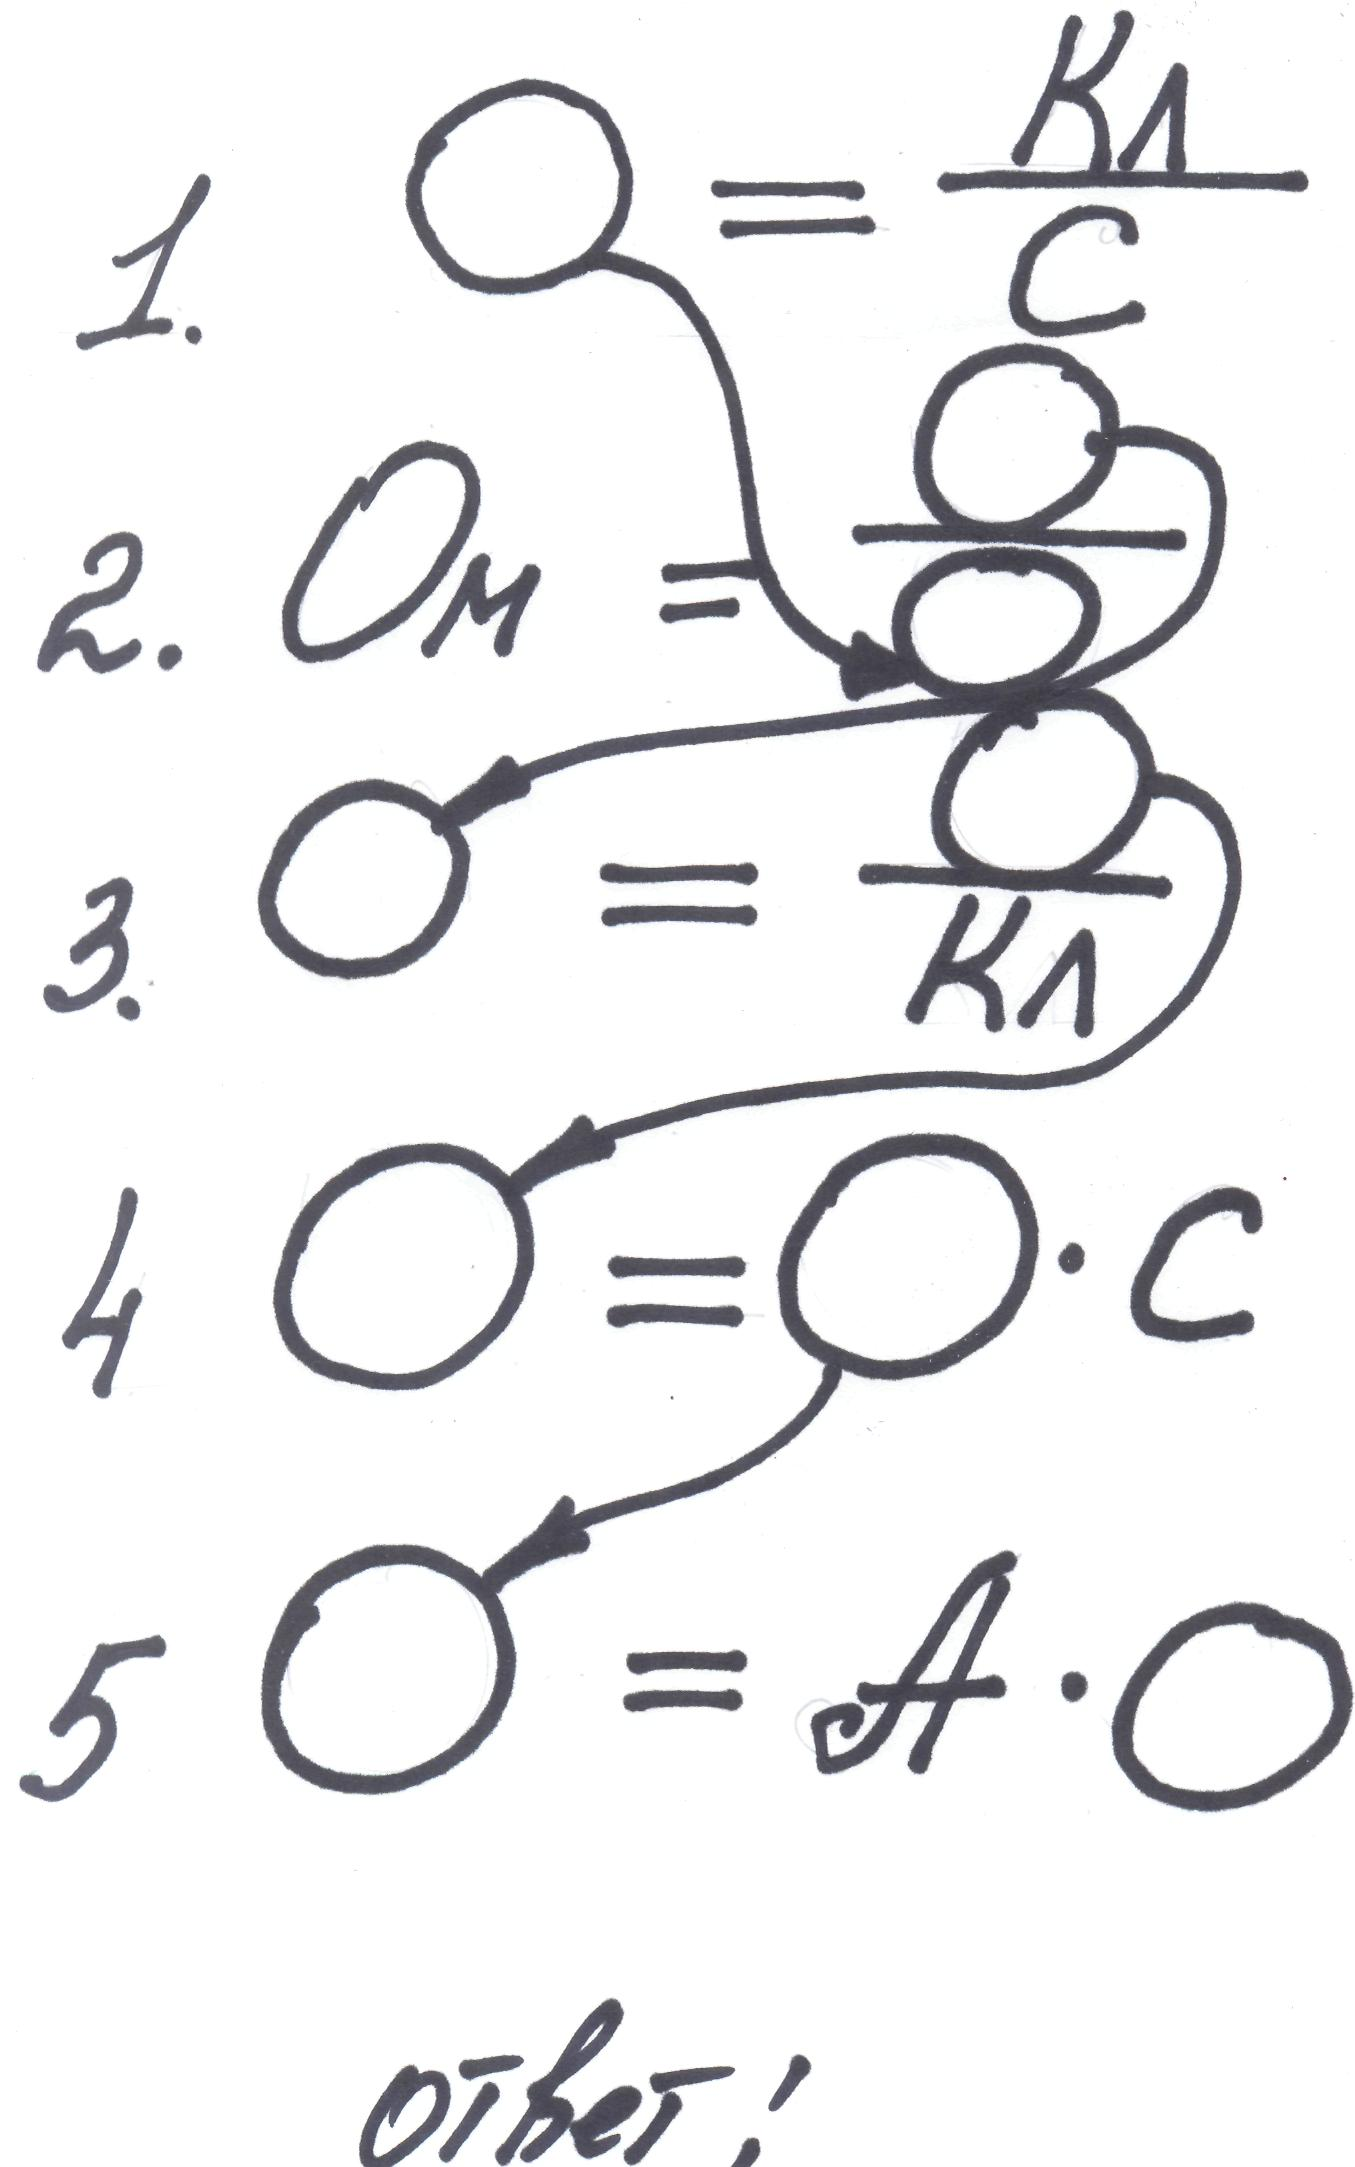 1. = Кл
С
2. Ом =
3. =
Кл
4 = · С
5 = А ·
ответ!